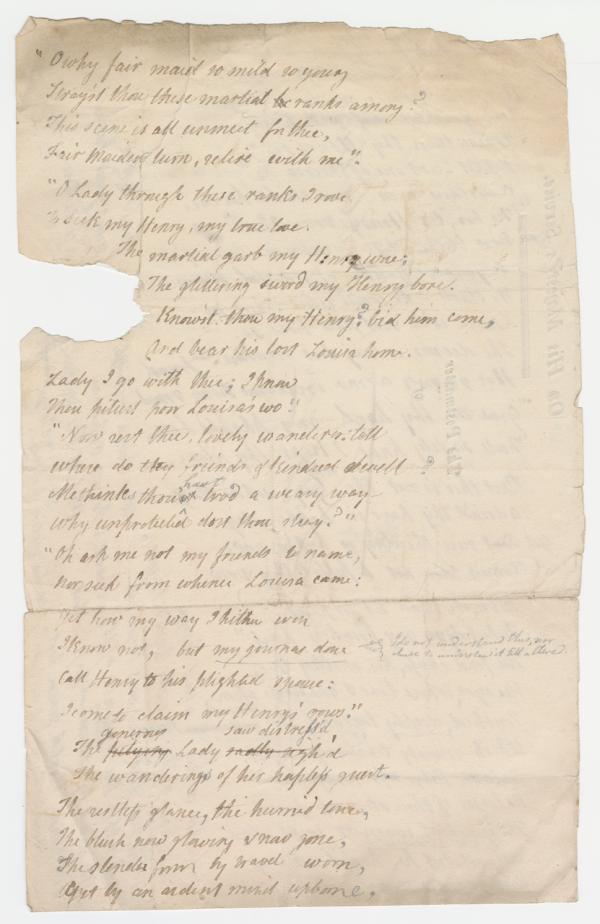 "O why fair maid so mild so young
Stray'st thou these martial ranks among?
This scene is all unmeet for thee,
Fair Maiden turn, retire with me".
"O Lady through these ranks I rove
To seek my Henry, my true love.
The martial garb my Henry wore;
The glittering sword my Henry bore.
Knows't thou my Henry? bid him come,
And bear his lost Louisa home.
Lady I go with thee; I know
Thou pitiest poor Louisa's wo!"
"Now rest thee, lovely wanderer: tell
where do thy friends & kindred dwell ?
Methinks thou hast trod a weary way
why unprotected dost thou stray?"
"Oh ask me not my friends to name,
Nor seek from whence Louisa came:
Yet how my way I hither won
I know not, but my journas done
I do not understand this, nor
chuse to understand it till altered.
Call Henry to his plighted spouse:
I come to claim my Henry's vows."
generous saw distress'd
The pitying Lady sadly sigh'd
The wanderings of her hapless guest.
The restless glance, the hurried tone,
The blush now glowing & now gone,
The slender form by travel worn,
Yet by an ardent mind upborne,
On His Majesty's Service
The Postmaster